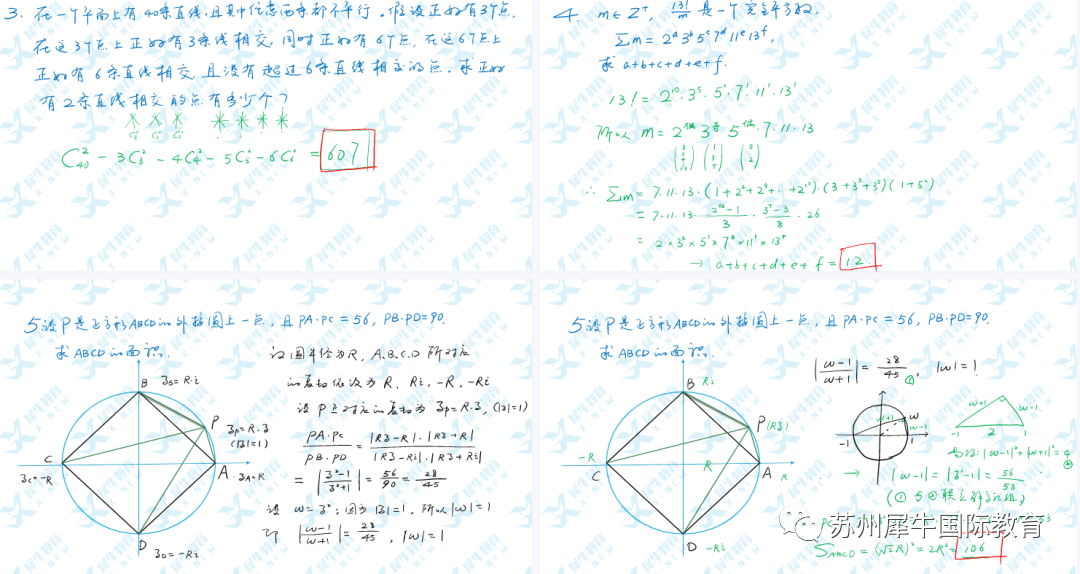 3. 在一个平面上有40条直线,且其中任意两条都不平行。假设正好有3个点,
在这3个点上正好有3条线相交,同时正好有6个点,在这6个点上
正好有6条直线相交,且没有超过6条直线相交的点。求正好
有2条直线相交的点有多少个?
C₄₀² - 3C₃² - 4C₄² - 5C₅² - 6C₆² = 607
4. m∈Z⁺, 13!/m 是一个完全平方数,
Σm = 2ᵃ3ᵇ5ᶜ7ᵈ11ᵉ13ᶠ,
求 a+b+c+d+e+f.
13! = 2¹⁰·3⁵·5²·7¹·11¹·13¹
所以 m = 2^偶 3^奇 5^偶·7·11·13
∴ Σm = 7·11·13·(1+2²+2⁴+..+2¹⁰)·(3+3³+3⁵)(1+5²)
= 7·11·13·(2¹²-1)/3·(3⁷-3)/8·26
= 2×3²×5¹×7³×11¹×13⁴
→ a+b+c+d+e+f = 12
5. 设P是正方形ABCD的外接圆上一点,且PA·PC=56, PB·PD=90.
求ABCD的面积.
设圆半径为R, A.B.C.D 所对应
的复数依次为 R, Ri, -R, -Ri
设P点对应的复数为 z_P=R·z, (|z|=1)
PA·PC/PB·PD = |Rz-R|·|Rz+R| / |Rz-Ri|·|Rz+Ri|
= |(z²-1)/(z²+1)| = 56/90 = 28/45
设 w=z²; 因为|z|=1, 所以|w|=1
即 |(w-1)/(w+1)| = 28/45, |w|=1
B z_B=R·i
P z_P=R·z
(|z|=1)
C
z_C=-R
A z_A=R
D
z_D=-Ri
5. 设P是正方形ABCD的外接圆上一点,且PA·PC=56, PB·PD=90.
求ABCD的面积.
|(w-1)/(w+1)| = 28/45 ①, |w|=1
B Ri
P(Rz)
-R
C
R
A R
D -Ri
-1
1
w
w+1
w-1
w+1
w-1
-1 2 1
|w-1|²+|w+1|²=4 ②
→ |w-1| = |z²-1| = 56/53
(①与②联立解方程组)
S_ABCD = (√2R)² = 2R² = 106
苏州犀牛国际教育